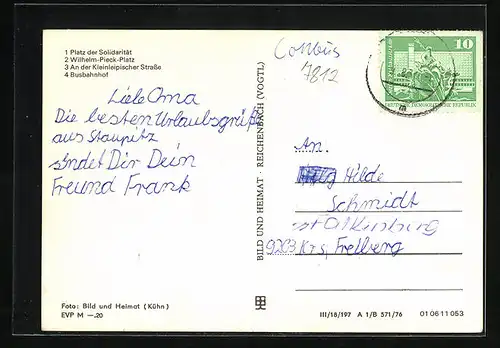 1 Platz der Solidarität
2 Wilhelm-Pieck-Platz
3 An der Kleinleipischer Straße
4 Busbahnhof
Cottbus
7812
10
DEUTSCHE DEMOKRATISCHE REPUBLIK
Liebe Oma
Die besten Urlaubsgrüße
aus Staupitz
sendet Dir Dein
Freund Frank
BILD UND HEIMAT · REICHENBACH (VOGTL)
An.
Hilde
Schmidt
Falkenberg
9203 Krs, Freiberg
Foto: Bild und Heimat (Kühn)
EVP M —.20
III/18/197 A 1/B 571/76
01 06 11 053